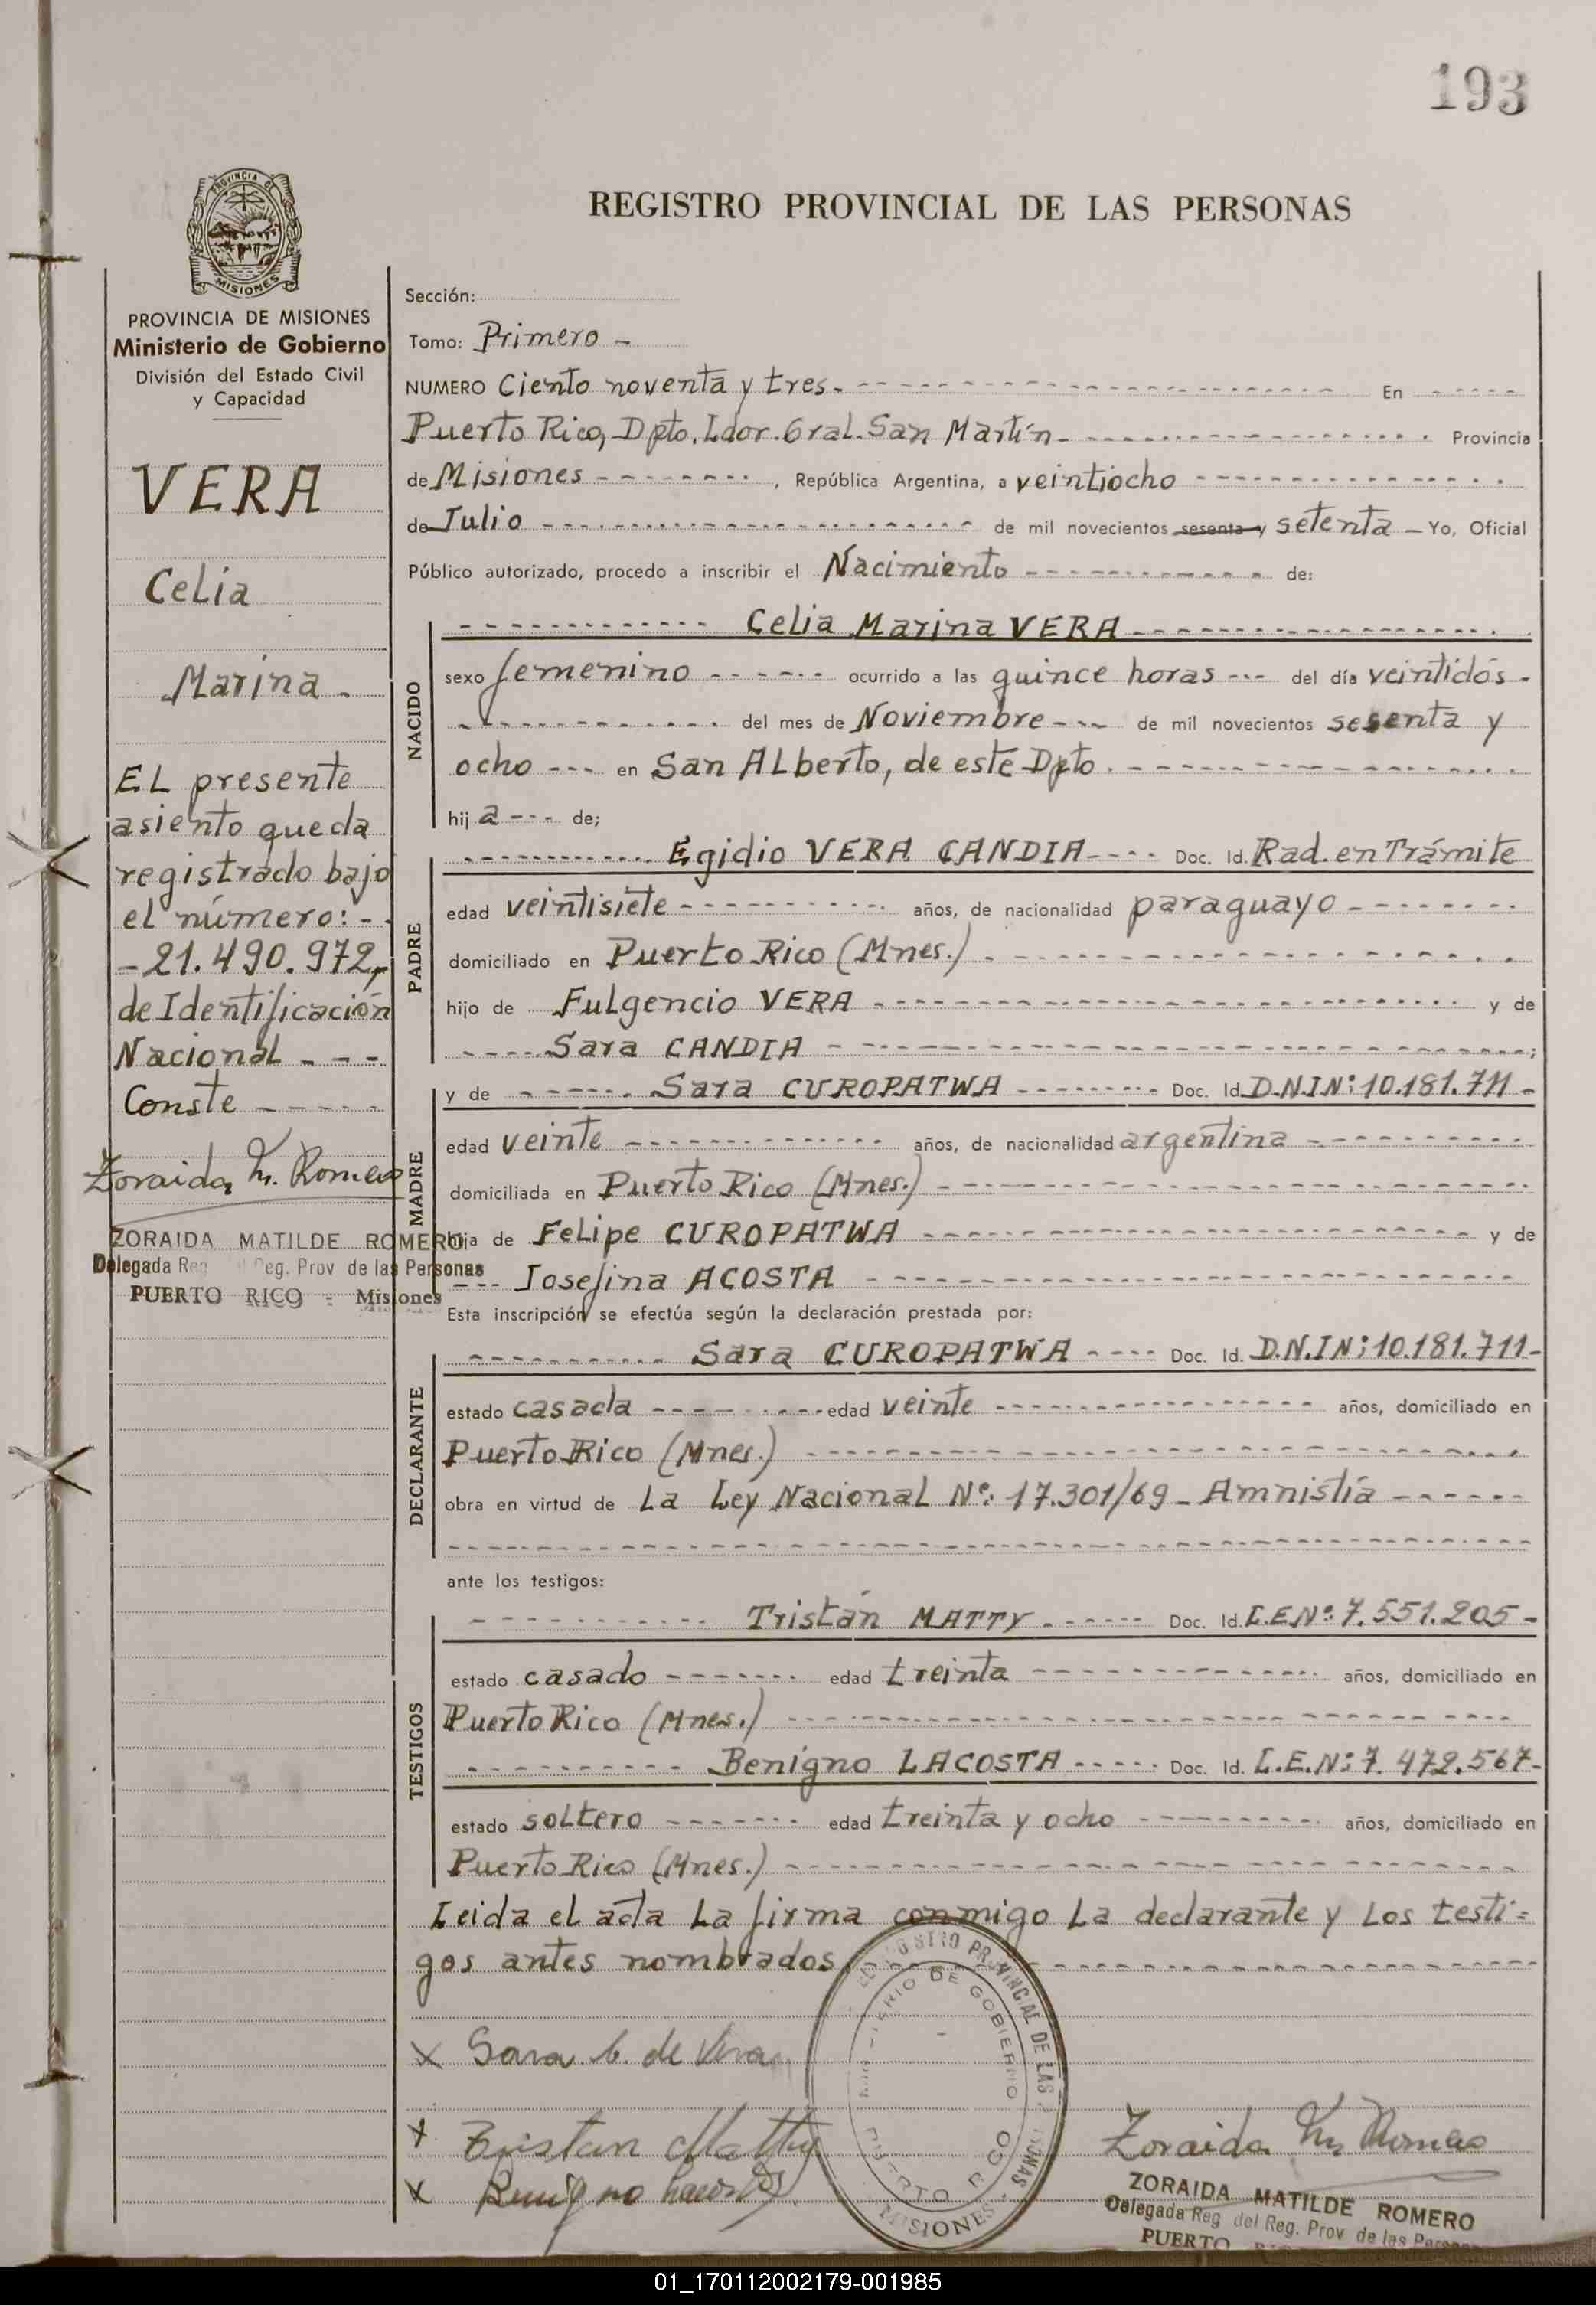 193
PROVINCIA DE MISIONES
REGISTRO PROVINCIAL DE LAS PERSONAS
PROVINCIA DE MISIONES
Ministerio de Gobierno
División del Estado Civil
y Capacidad
VERA
Celia
Marina -
EL presente
asiento queda
registrado bajo
el número: - -
- 21.490.972,
de Identificación
Nacional - - -
Conste - - - - -
Zoraida M. Romero
ZORAIDA MATILDE ROMERO
Delegada Reg. del Reg. Prov de las Personas
PUERTO RICO - Misiones
Sección:
Tomo: Primero -
NUMERO Ciento noventa y tres. - - - - En - - - -
Puerto Rico, Dpto. Ldor. Gral. San Martín. - - - - Provincia
de Misiones - - - - , República Argentina, a veintiocho - - - -
de Julio - - - - de mil novecientos sesenta y setenta - Yo, Oficial
Público autorizado, procedo a inscribir el Nacimiento - - - - de:
NACIDO
- - - - Celia Marina VERA - - - -
sexo femenino - - - - ocurrido a las quince horas - - - del día veintidós -
- - - - del mes de Noviembre - - - de mil novecientos sesenta y
ocho - - - en San ALberto, de este Dpto. - - - -
hij a - - - de;
PADRE
- - - - Egidio VERA CANDIA - - - - Doc. Id. Rad. en Trámite
edad veintisiete - - - - años, de nacionalidad paraguayo - - - -
domiciliado en Puerto Rico (Mnes.) - - - -
hijo de Fulgencio VERA - - - - y de
- - - - Sara CANDIA - - - - ;
MADRE
y de - - - - Sara CUROPATWA - - - - Doc. Id. D.N.IN: 10.181.711 -
edad veinte - - - - años, de nacionalidad argentina - - - -
domiciliada en Puerto Rico (Mnes.) - - - -
hija de FeLipe CUROPATWA - - - - y de
- - - Josefina ACOSTA - - - -
Esta inscripción se efectúa según la declaración prestada por:
DECLARANTE
- - - - Sara CUROPATWA - - - - Doc. Id. D.N.IN: 10.181.711 -
estado casada - - - - edad veinte - - - - años, domiciliado en
Puerto Rico (Mnes.) - - - -
obra en virtud de La Ley Nacional Nº: 17.301/69 - Amnistía - - - -
ante los testigos:
TESTIGOS
- - - - Tristán MATTY - - - - Doc. Id. L.E.Nº: 7.551.205 -
estado casado - - - - edad treinta - - - - años, domiciliado en
Puerto Rico (Mnes.) - - - -
- - - - Benigno LACOSTA - - - - Doc. Id. L.E.N: 7.472.567 -
estado soltero - - - - edad treinta y ocho - - - - años, domiciliado en
Puerto Rico (Mnes.) - - - -
Leida el acta La firma conmigo La declarante y Los testi=
gos antes nombrados. - - - -
x Sara C. de Vera
x Tristan Matty
x Benigno Lacosta
REGISTRO PROVINCIAL DE LAS PERSONAS
MINISTERIO DE GOBIERNO
PUERTO RICO
MISIONES
Zoraida M. Romero
ZORAIDA MATILDE ROMERO
Delegada Reg del Reg. Prov de las
PUERTO
01_170112002179-001985